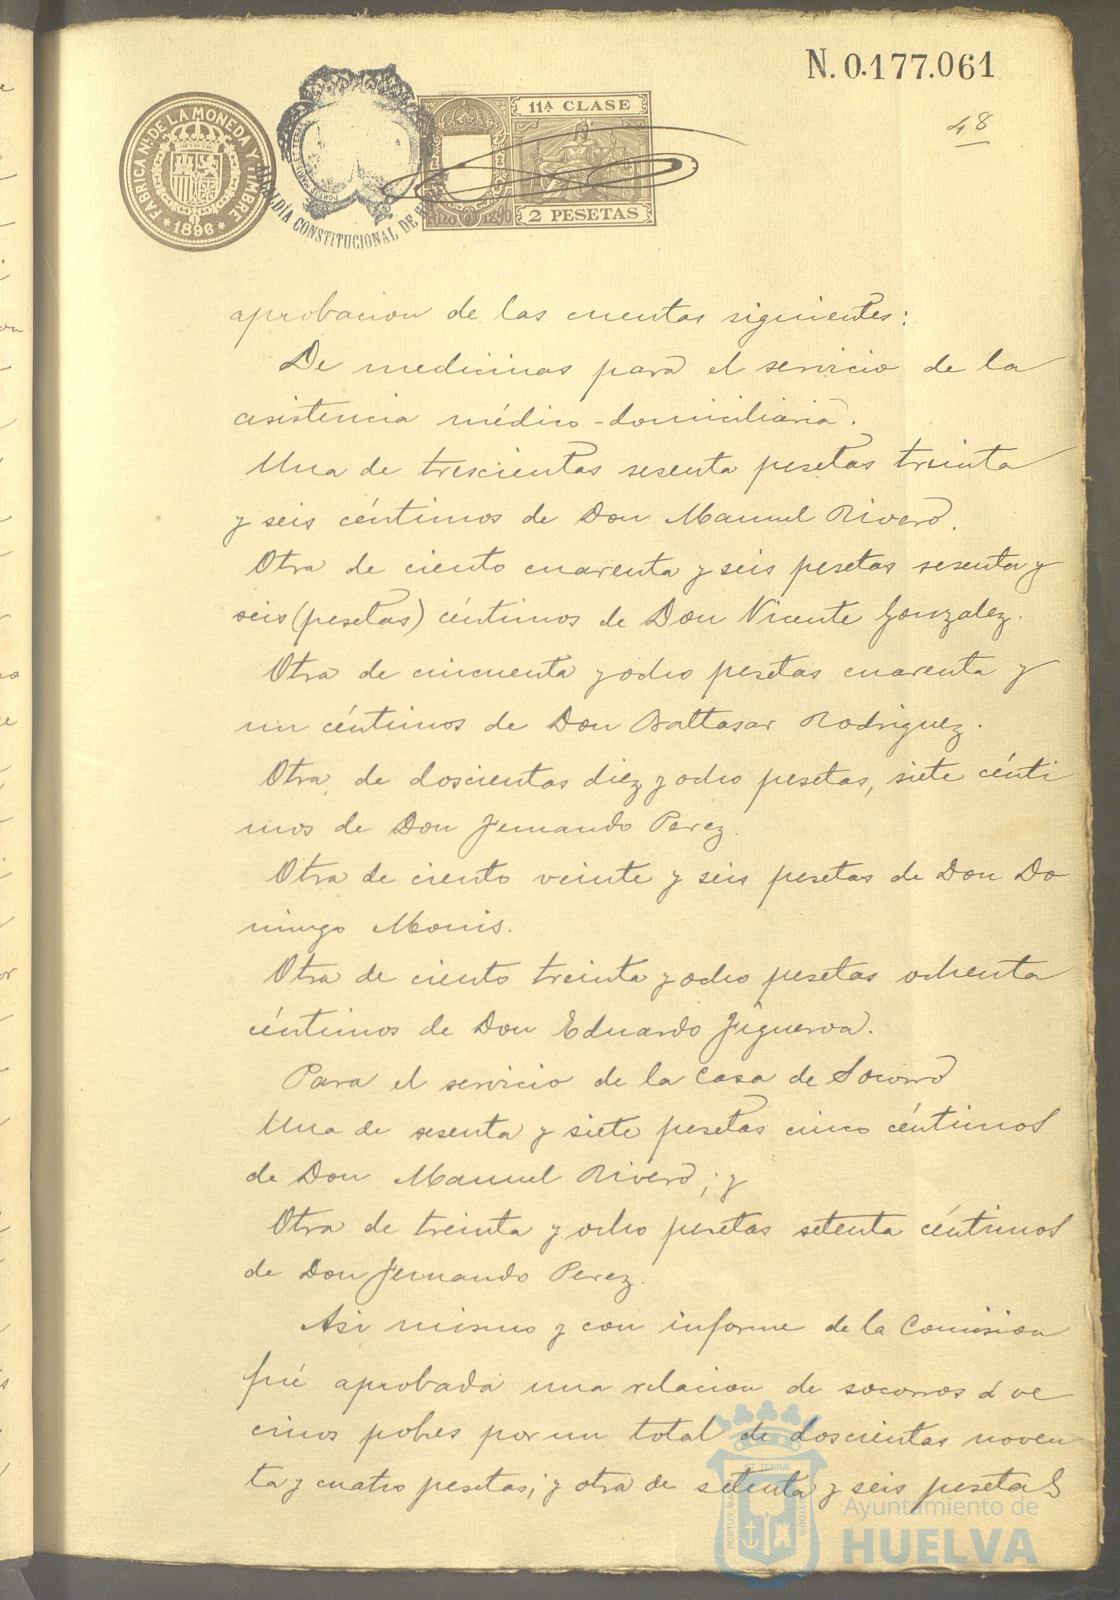 N. 0.177.061
48
FABRICA Nal. DE LA MONEDA Y TIMBRE
* 1896 *
ALCALDÍA CONSTITUCIONAL DE
11ª CLASE
2 PESETAS
aprobacion de las cuentas siguientes:
De medicinas para el servicio de la
asistencia médico-domiciliaria.
Una de trescientas sesenta pesetas treinta
y seis céntimos de Don Manuel Rivero.
Otra de ciento cuarenta y seis pesetas sesenta y
seis (pesetas) céntimos de Don Vicente Gonzalez.
Otra de cincuenta y ocho pesetas cuarenta y
un céntimos de Don Baltasar Rodriguez.
Otra de doscientas diez y ocho pesetas, siete cénti
mos de Don Fernando Perez.
Otra de ciento veinte y seis pesetas de Don Do
mingo Monis.
Otra de ciento treinta y ocho pesetas ochenta
céntimos de Don Eduardo Figueroa.
Para el servicio de la Casa de Socorro
Una de sesenta y siete pesetas cinco céntimos
de Don Manuel Rivero; y
Otra de treinta y ocho pesetas setenta céntimos
de Don Fernando Perez.
Asi mismo y con informe de la Comision
fué aprobada una relacion de socorros á ve
cinos pobres por un total de doscientas noven
ta y cuatro pesetas; y otra de setenta y seis pesetas
Ayuntamiento de
HUELVA